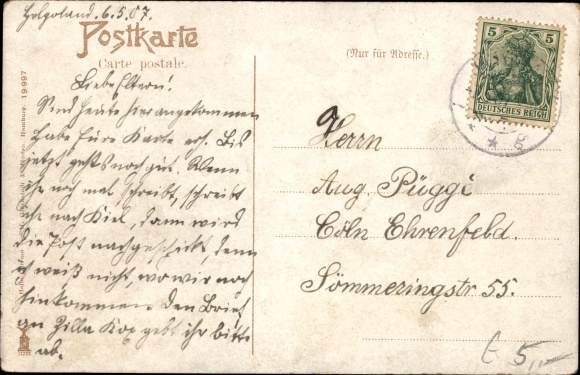 Helgoland. 6.5.07.
Postkarte
Carte postale.
(Nur für Adresse.)
Liebe Eltern!
Sind heute hier angekommen
habe Eure Karte erh. Bis
jetzt gehts noch gut. Wenn
Ihr noch mal schreibt, schreibt
nach Kiel, dann wird
die Post nachgeschickt, denn
ich weiß nicht, wo wir noch
hinkommen. Den Brief
an Zilla gebt ihr bitte
ab.
5 5
DEUTSCHES REICH
Herrn
Aug. Püggé
Cöln Ehrenfeld.
Sömmeringstr 55.
Hamburg. 19997
5,-